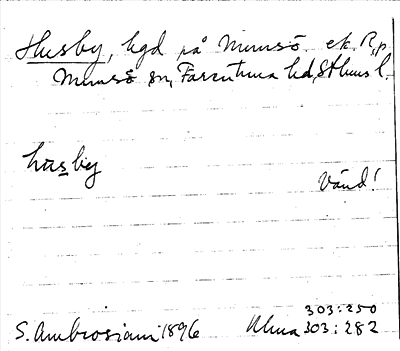 Husby, hgd på Munsö. ek. R, p.
Munsö sn, Färentuna hd, Sthms l.
hu̅s̲by
Vänd!
303:250
S. Ambrosiani 1896 Uhma 303:282